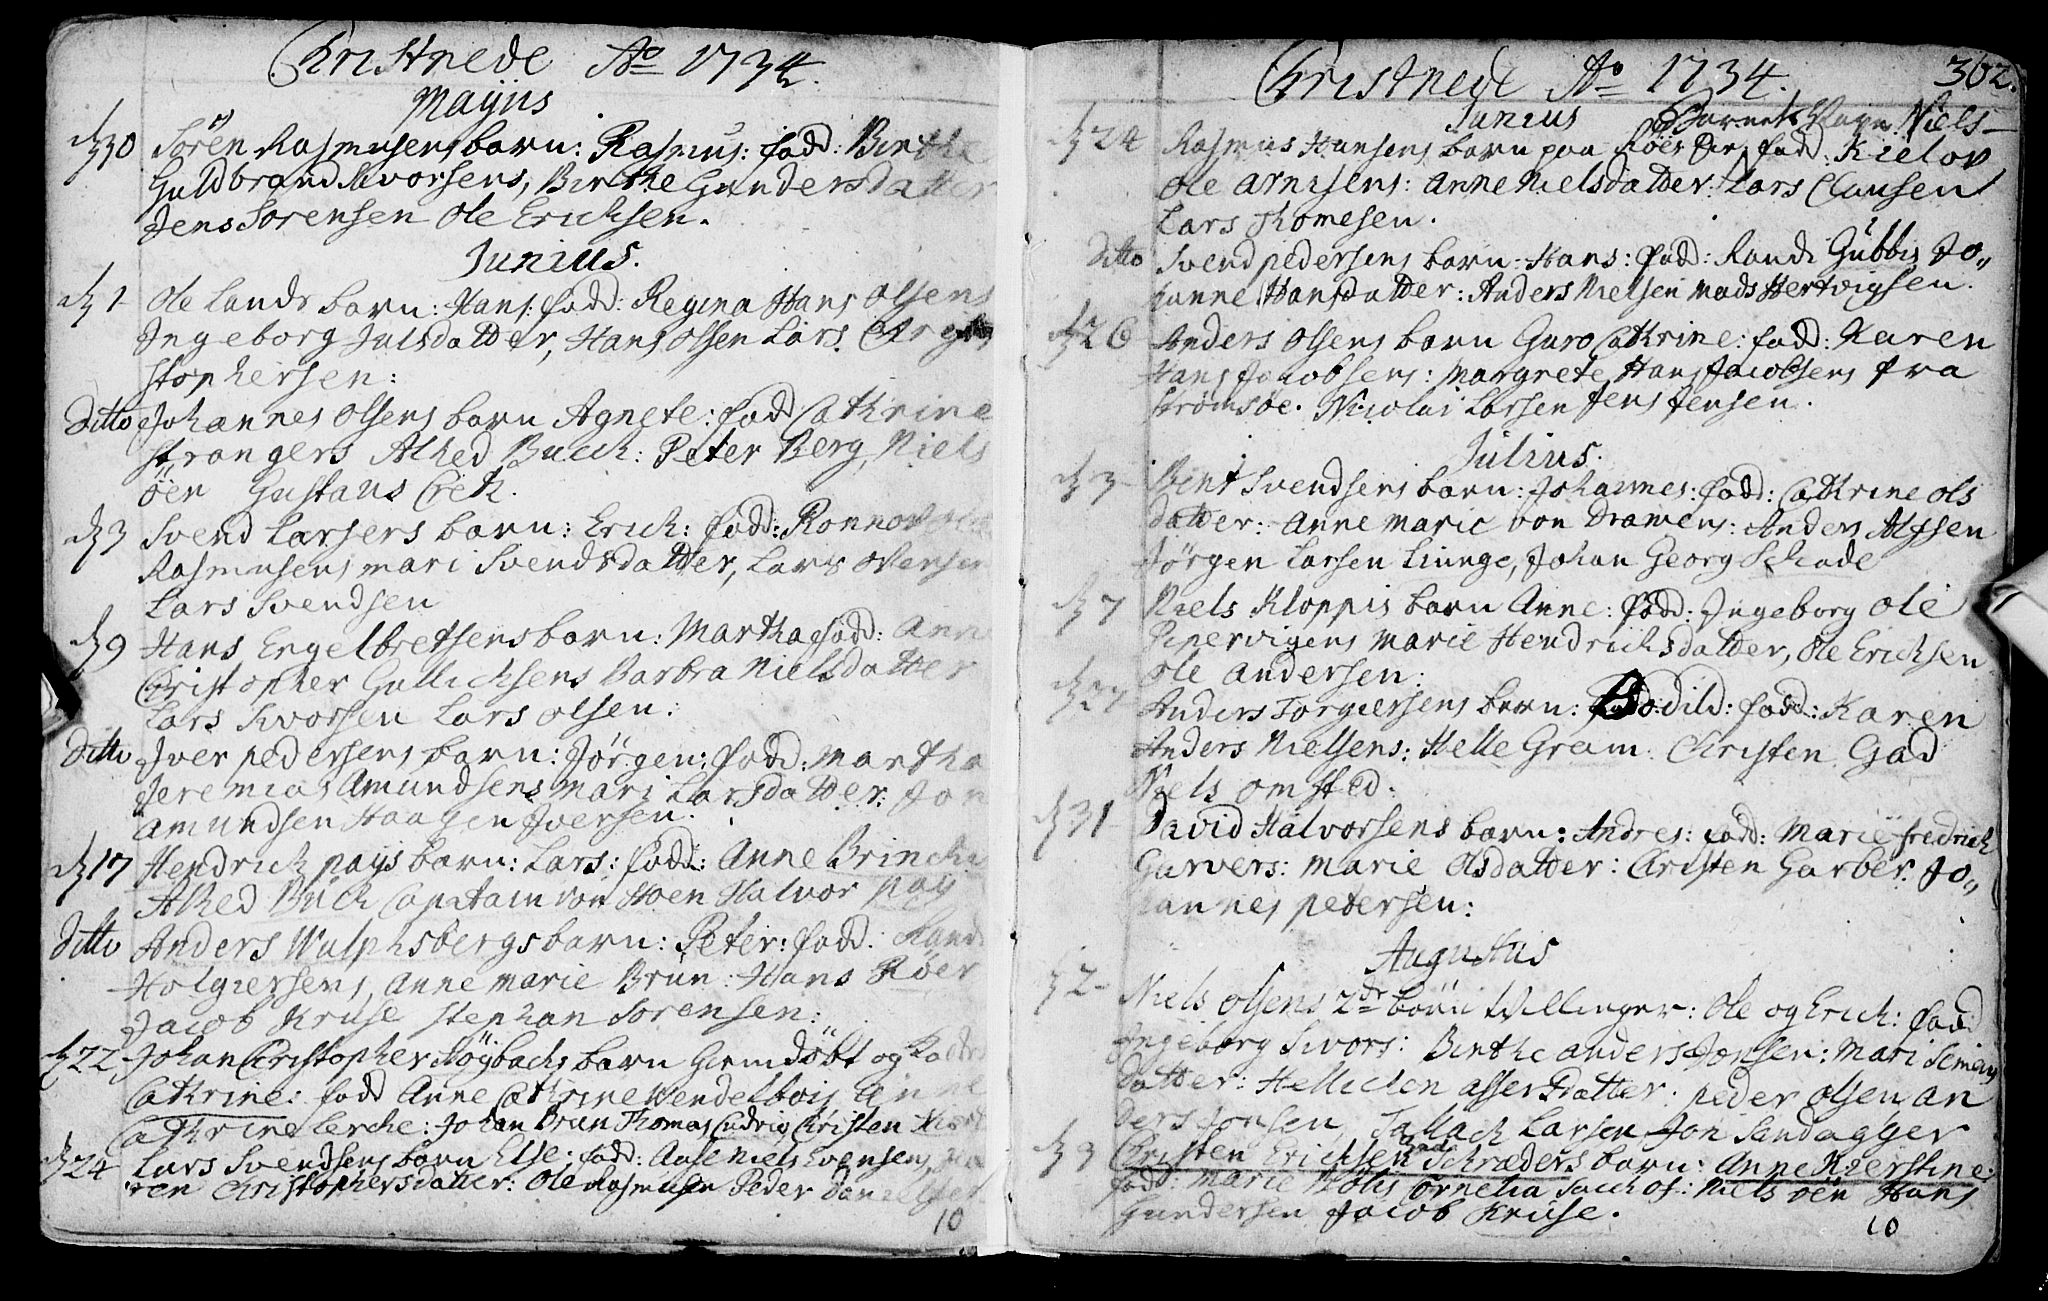 Christnede Ao 1734.
Majus
d. 30 Sören Rasmusens barn: Rasmus: fadd: Birthe
Guldbrand Sivorsens, Birthe Gundersdatter
Jens Sorensen Ole Ericksen.
Junius.
d. 1 Ole Lands barn: Hans: fadd: Regina Hans Olsens
Ingeborg Julsdatter, Hans Olsen Lars Chri
stophersen:
Ditto Johannes Olsens barn Agnete: fadd Cathrine
strangers Alhed Buch: Peter Berg, Niels
öen Gustavs
d. 3 Svend Larsens barn: Erich: fadd: Ronnov
Rasmusens mari Svendsdatter, Lars Iversen
Lars Svendsen
d. 9 Hans Engelbretsens barn: Martha fadd: Anne
Christopher Gullichsens Barbra Nielsdatter
Lars Sivorsen Lars olsen:
Ditto Iver pedersens barn: Jörgen: fadd: Martha
Jeremias Amundsens mari Larsdatter: Jon
Amundsen Haagen Iversen.
d. 17 Hendrich pays barn: Lars: fadd: Anne Brinchs
Alhed Buch Capitain von Hoen Halvor pay
Ditto Anders Wulphsbergs barn: Peter: fadd: Rand
Holgiersens, Anne marie Brun: Hans Röer
Jacob Kruse Stephan Sorensen:
d. 22 Johan Christopher Högbachs barn hiemdöbt og
Cathrine: fadd Anne Cathrine Wendelbois
Cathrine Lerche: Johan Brun Thomas Ludvig Christen
d. 24 Lars Svendsens barn Else: fadd: Aase Niels Evensens, Ka
ren Christophersdatter: Ole Rasmusen Peder Danielsen
10
Christnede Ao 1734. 302.
Junius Barnets Navn Niels
d. 24 Rasmus Hansens barn paa Röer fadd: Kielov
Ole Arnesens: Anne Nielsdatter: Lars Clausen
Lars Thomesen.
Ditto Svend pedersens barn: Hans: fadd: Rande Gubbis Jo,,
hanne Hansdatter: Anders Nielsen Mads Hertvigsen.
d. 26 Anders Olsens barn Guro Cathrine: fadd: Karen
Hans Jacobsens: Margrete Hans Jacobsens fra
strømsöe. Nicolai Larsen Jens Jensen.
Julius.
d. 3 Bent Svendsens barn: Johannes: fadd: Cathrine Ols
datter: Anne Marie von Dramens: Anders Alfsen
Jörgen Larsen Liunge, Johan Georg Schade
d. 7 Niels Kloppis barn Anne: fadd: Ingeborg Ole
Pipervigens Marie Hendrichsdatter, Ole Ericksen
Ole Andersen:
d. 27 Anders Torgiersens barn: Bodild: fadd: Karen
Anders Nielsens: Helle Gram. Christen Gad
Niels omsted.
d. 31 David Halvorsens barn: Andres: fadd: Marie fredrich
Garvers: Marie Olsdatter: Christen Garber. Jo,,
hannes petersen:
Augustus
d. 2 Niels Olsens 2de börn tvillinger: Ole og Erich: fadd
Ingeborg Sivors: Birthe anders Jonsen: Mari Simens
datter: Hellichen assersdatter: peder Olsen An
ders Jonsen, Tallach Larsen Jon Sandagger
d. 9 Christen Ericksen Schræders barn: Anne Kierstine:
fadd: Marie Cornelia: Niels öen Hans
Gundersen Jacob Kruse.
10